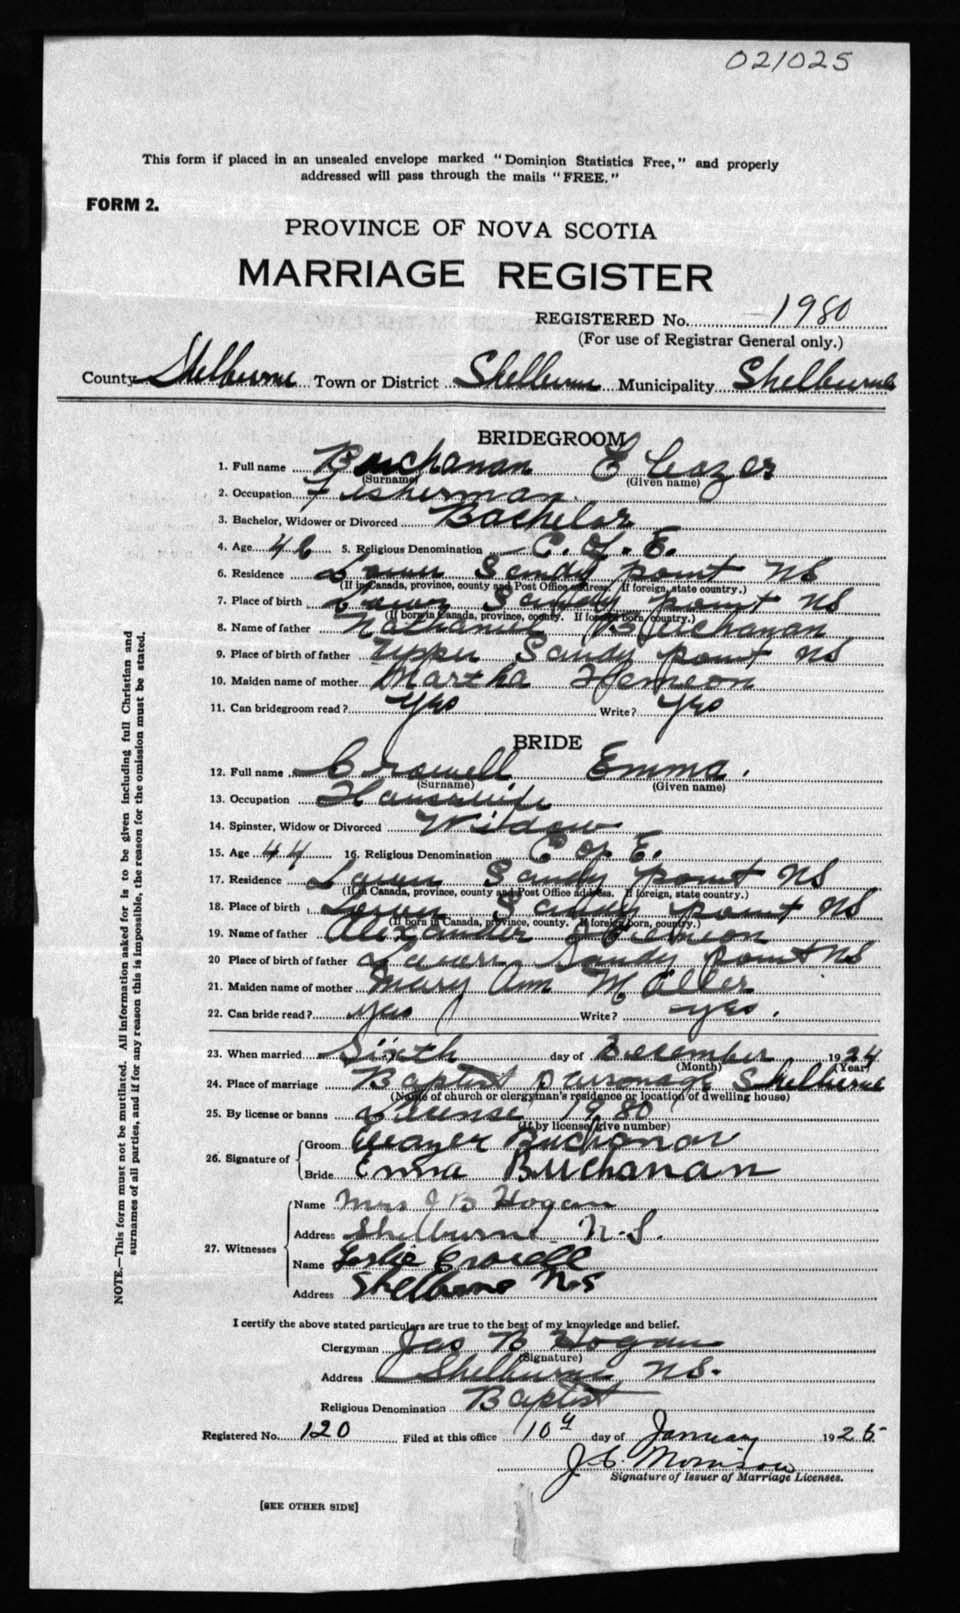 021025
This form if placed in an unsealed envelope marked "Dominion Statistics Free," and properly
addressed will pass through the mails "FREE."
FORM 2.
PROVINCE OF NOVA SCOTIA
MARRIAGE REGISTER
REGISTERED No. 1980
(For use of Registrar General only.)
County Shelburne Town or District Shelburne Municipality Shelburne
BRIDEGROOM
1. Full name Buchanan Eleazer
(Surname) (Given name)
2. Occupation Fisherman
3. Bachelor, Widower or Divorced Bachelor
4. Age 46 5. Religious Denomination C. of. E.
6. Residence Lower Sandy point NS
(If in Canada, province, county and Post Office address. If foreign, state country.)
7. Place of birth Lower Sandy point NS
(If born in Canada, province, county. If foreign born, country.)
8. Name of father Nathaniel Buchanan
9. Place of birth of father Upper Sandy point NS
10. Maiden name of mother Martha Hemeon
11. Can bridegroom read? Yes Write? Yes
BRIDE
12. Full name Crowell Emma.
(Surname) (Given name)
13. Occupation Housewife
14. Spinster, Widow or Divorced Widow
15. Age 44 16. Religious Denomination C of E.
17. Residence Lower Sandy point NS
(If in Canada, province, county and Post Office address. If foreign, state country.)
18. Place of birth Lower Sandy point NS
(If born in Canada, province, county. If foreign born, country.)
19. Name of father Alexander Hemeon
20 Place of birth of father Lower Sandy point NS
21. Maiden name of mother Mary Ann
22. Can bride read? yes Write? yes.
23. When married Sixth day of December 1924
(Month) (Year)
24. Place of marriage Baptist Parsonage Shelburne
(Name of church or clergyman's residence or location of dwelling house)
25. By license or banns License 1980
(If by license, give number)
26. Signature of Groom Eleazer Buchanan
Bride Emma Buchanan
27. Witnesses Name Mrs J B Hogan
Address Shelburne N.S.
Name Leslie Crowell
Address Shelburne N.S
I certify the above stated particulars are true to the best of my knowledge and belief.
Clergyman Jas B Hogan
(Signature)
Address Shelburne NS.
Religious Denomination Baptist
Registered No. 120 Filed at this office 10 day of January 1925
J. C. Morrison
Signature of Issuer of Marriage Licenses.
[SEE OTHER SIDE]
NOTE.—This form must not be mutilated. All information asked for is to be given including full Christian and
surnames of all parties, and if for any reason this is impossible, the reason for the omission must be stated.